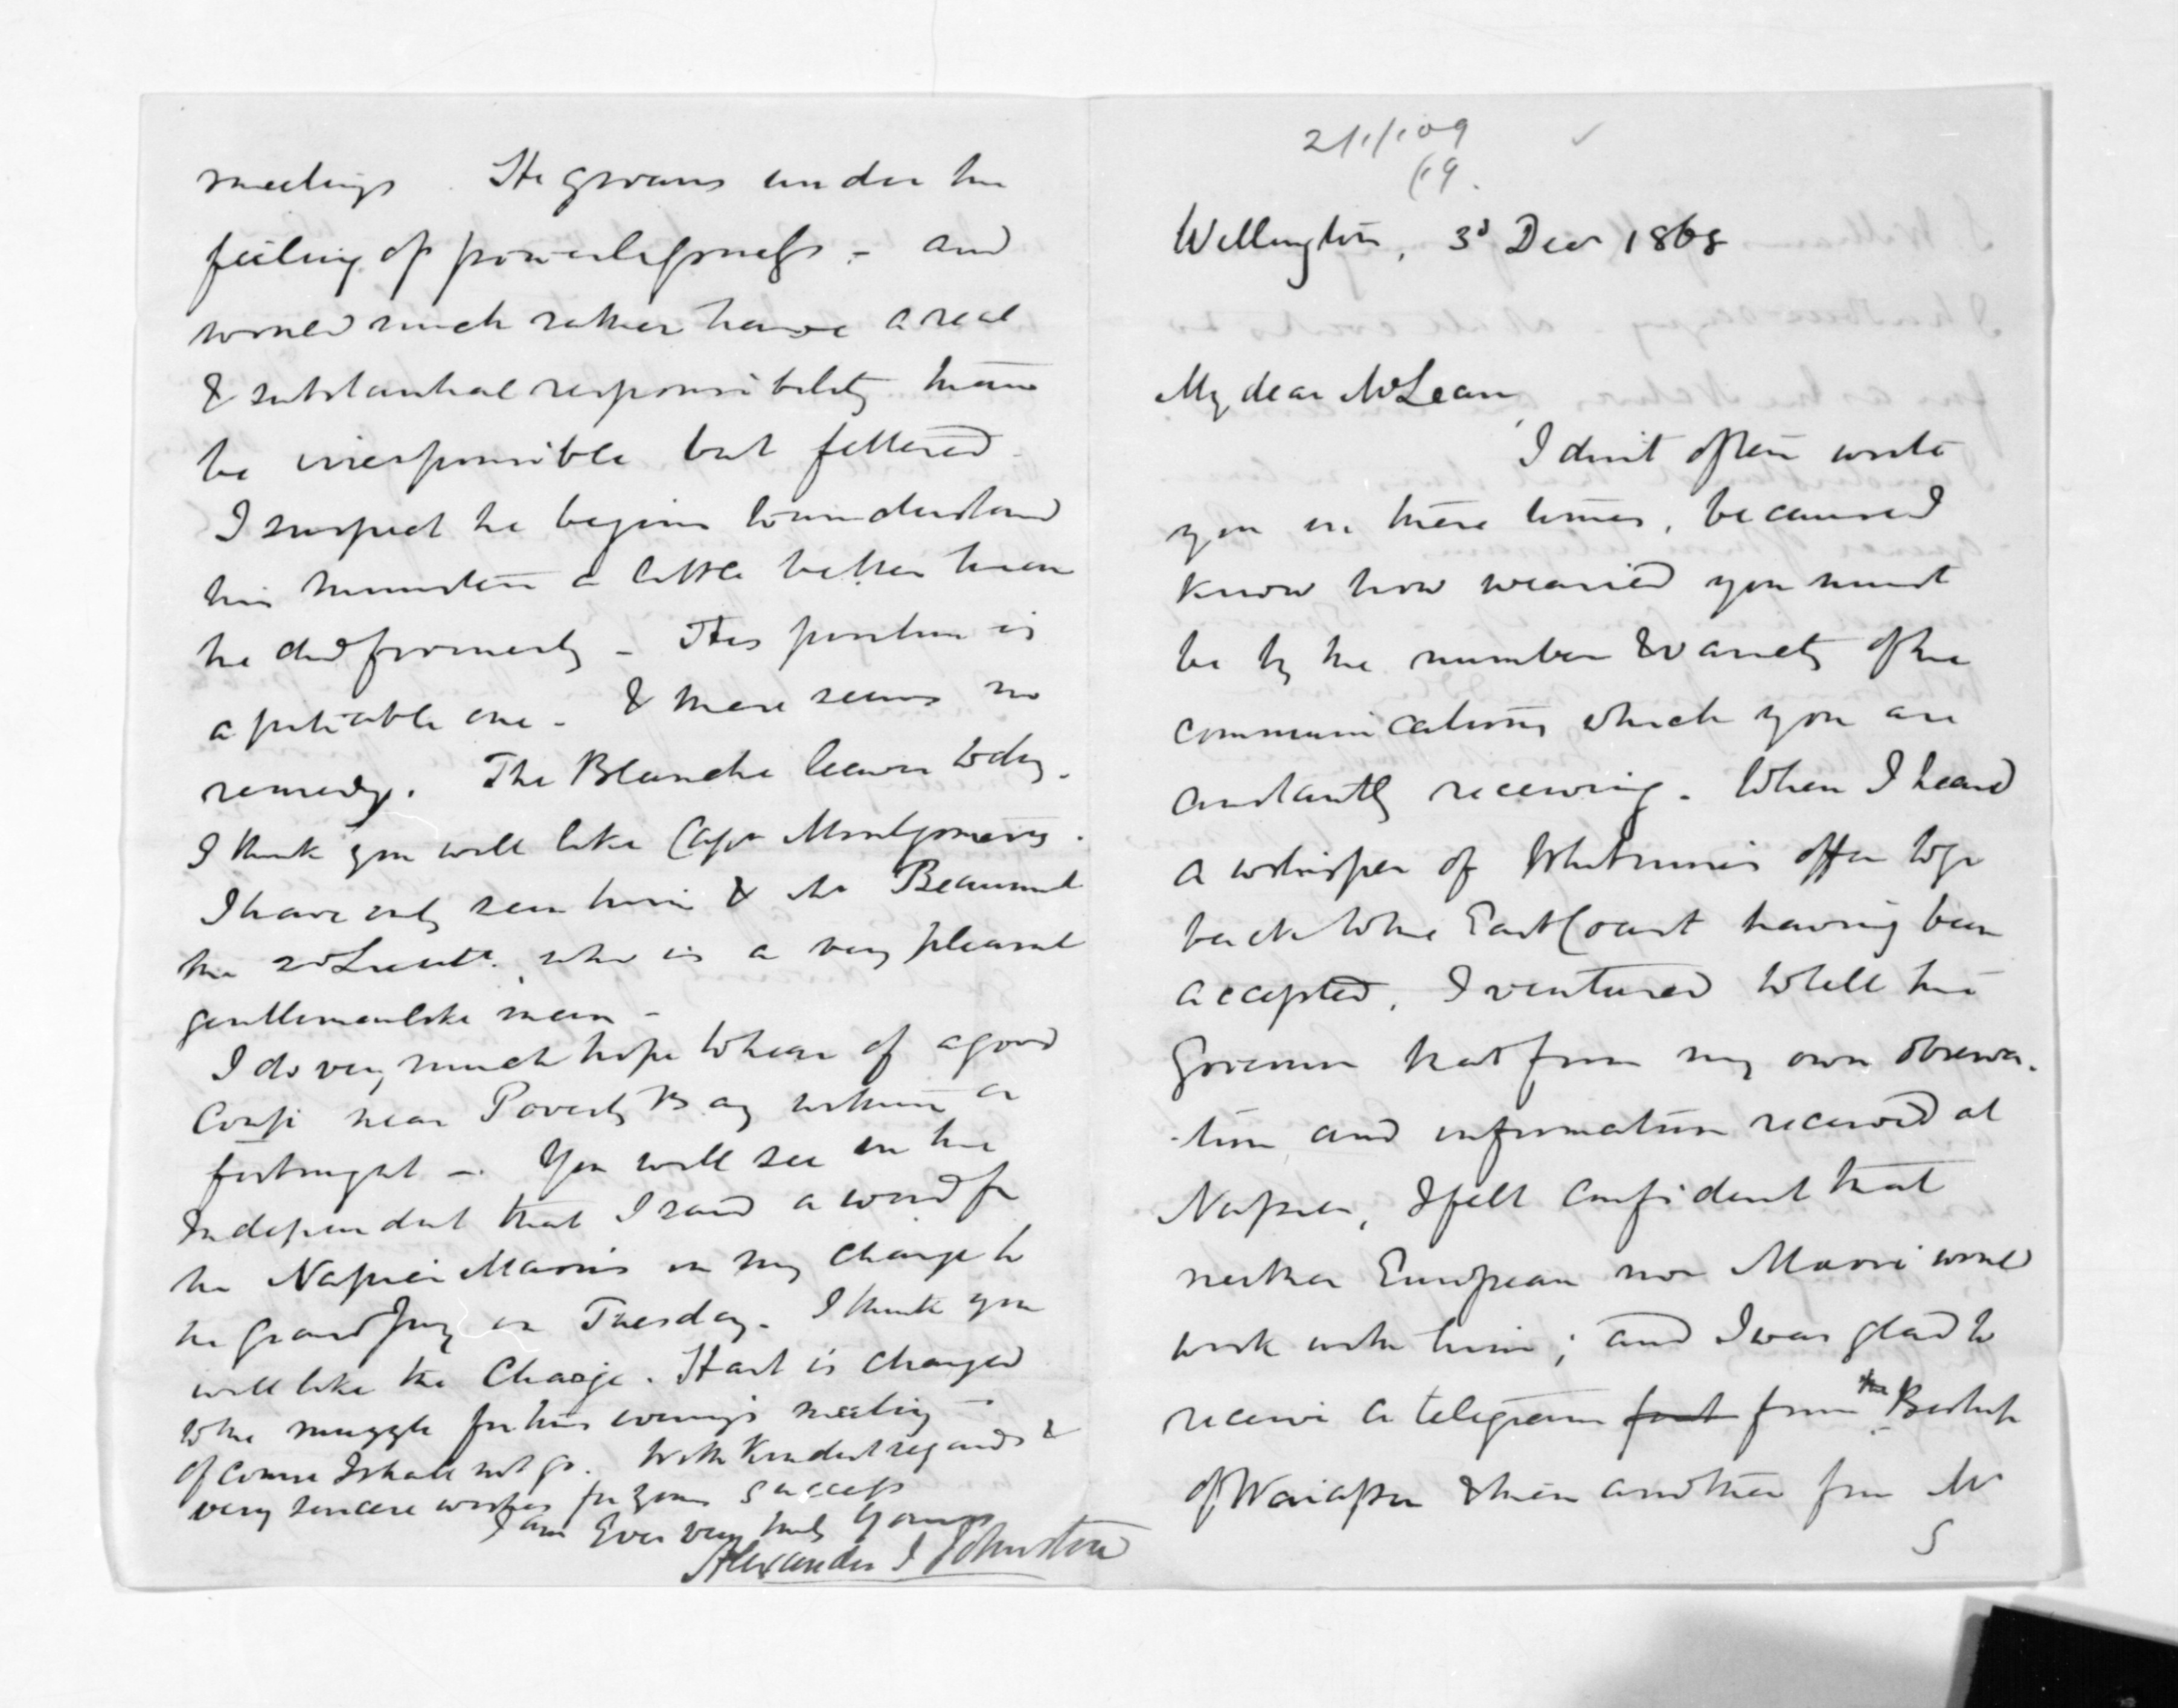 21/1/109
69.
Wellington, 3d Decr 1868
My dear McLean,
I don't often write
you in these times, because I
know how wearied you must
be by the number & variety of the
communications which you are
constantly receiving. When I heard
a whisper of Whitmore's offer to go
back to the East Coast having been
accepted, I ventured to tell the
Governor that from my own observa-
-tion and information received at
Napier, I felt confident that
neither European nor Maori would
work with him; and I was glad to
receive a telegram from the Bishop
of Waiapu & then another from Mr
S
meetings. He groans under the
feeling of powerlessness - and
would much rather have a real
& substantial responsibility than
be irresponsible but fettered -
I suspect he begins to understand
his ministers a little better than
he did formerly - His position is
a pitiable one - & there seems no
remedy. The Blanche leaves today.
I think you will like Capt Montgomerie.
I have only seen him & Mr Beaumont
the 2d Lieutt. who is a very pleasant
gentlemanlike man -
I do very much hope to hear of a good
Coup near Poverty Bay within a
fortnight -. You will see in the
Independent that I said a word for
the Napier Maoris in my charge to
the Grand Jury on Tuesday. I think you
will like the Charge. Hart is changed
to the for this evening's meeting -
of course I shall not go. With kindest regards &
very sincere wishes for your success
I am Ever very truly Yours
Alexander J Johnston